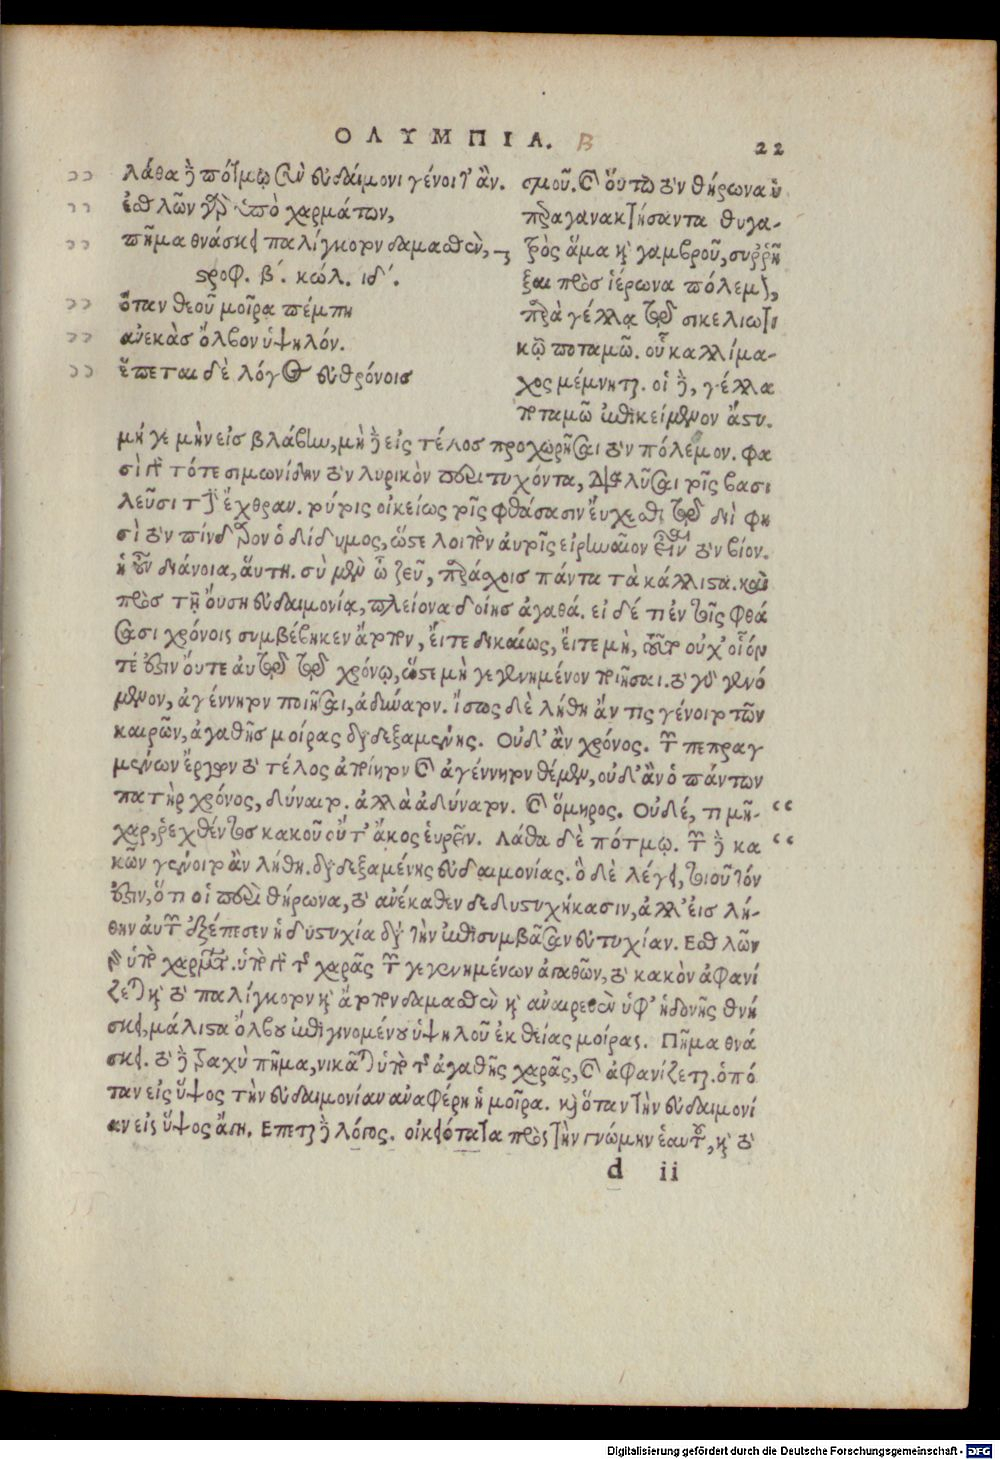 ΟΛΥΜΠΙΑ. Β 22
λάθα δὲ πότμῳ σὺν εὐδαίμονι γένοιτ' ἄν.
ἐσθλῶν γὰρ ὑπὸ χαρμάτων,
πῆμα θνάσκει παλίγκοτον δαμασθὲν,
στροφ. β´. κώλ. ιδ´.
ὅταν θεοῦ μοῖρα πέμπῃ
ἀνεκὰς ὄλβον ὑψηλόν.
ἕπεται δὲ λόγος εὐθρόνοις
σμοῦ. καὶ οὕτω τὸν θήρωνα ὑ
περαγανακτήσαντα θυγα-
τρὸς ἅμα καὶ γαμβροῦ, συρρῆ
ξαι πρὸς ἱέρωνα πόλεμον,
παρὰ γέλλᾳ τῷ σικελιωτι
κῷ ποταμῷ. οὗ καλλίμα-
χος μέμνηται. οἱ δὲ, γέλλα
ποταμῷ ἐπικείμενον ἄστυ.
μή γε μὴν εἰς βλάβην, μὴ δὲ εἰς τέλος προχωρῆσαι τὸν πόλεμον. φα
σὶ γὰρ τότε σιμωνίδην τὸν λυρικὸν περιτυχόντα, διαλῦσαι τοῖς βασι
λεῦσι τὴν ἔχθραν. τούτοις οἰκείως τοῖς φθάσασιν εὔχεσθαι τῷ διὶ φη
σὶ τὸν πίνδαρον ὁ δίδυμος, ὥστε λοιπὸν αὐτοῖς εἰρηναῖον εἶναι τὸν βίον.
ἡ οὖν διάνοια, αὕτη. σὺ μὲν ὦ ζεῦ, παράχοις πάντα τὰ κάλλιστα. καὶ
πρὸς τῇ οὔσῃ εὐδαιμονίᾳ, πλείονα δοίης ἀγαθά. εἰ δέ τι ἐν τοῖς φθά
σασι χρόνοις συμβέβηκεν ἄτοπον, εἴτε δικαίως, εἴτε μὴ, τοῦτο οὐχ' οἷόν
τέ ἐστιν οὔτε αὐτῷ τῷ χρόνῳ, ὥστε μὴ γεγενημένον ποιῆσαι. τὸ γὰρ γενό
μενον, ἀγέννητον ποιῆσαι, ἀδύνατον. ἴσως δὲ λήθη ἄν τις γένοιτο τῶν
καιρῶν, ἀγαθῆς μοίρας διαδεξαμένης. Οὐδ' ἂν χρόνος. τῶν πεπραγ
μένων ἔργων τὸ τέλος ἀποίητον καὶ ἀγέννητον θέμεν, οὐδ' ἂν ὁ πάντων
πατὴρ χρόνος, δύναιτο. ἀλλὰ ἀδύνατον. καὶ ὅμηρος. Οὐδέ, τι μῆ-
χος, ῥεχθέντος κακοῦ οὔτ' ἄκος ἑυρεῖν. Λάθα δὲ πότμῳ. τῶν δὲ κα
κῶν γένοιτο ἂν λήθη. διαδεξαμένης εὐδαιμονίας. ὃ δὲ λέγει, τοιοῦτόν
ἐστιν, ὅτι οἱ περὶ θήρωνα, τὸ ἀνέκαθεν δεδυστυχήκασιν, ἀλλ' εἰς λή-
θην αὐτῶν ἐξέπεσεν ἡ δυστυχία διὰ τὴν ἐπισυμβᾶσαν εὐτυχίαν. Εσθλῶν
γὰρ ὑπὸ χαρμάτων. ὑπὸ γὰρ τῆς χαρᾶς τῶν γεγενημένων ἀγαθῶν, τὸ κακὸν ἀφανί
ζεται καὶ τὸ παλίγκοτον καὶ ἄτοπον δαμασθὲν καὶ ἀναιρεθὲν ὑφ' ἡδονῆς θνή
σκει, μάλιστα ὄλβου ἐπιγινομένου ὑψηλοῦ ἐκ θείας μοίρας. Πῆμα θνά
σκει. τὸ δὲ τραχὺ πῆμα, νικᾶται ὑπὸ τῆς ἀγαθῆς χαρᾶς, καὶ ἀφανίζεται. ὁπό
ταν εἰς ὕψος τὴν εὐδαιμονίαν ἀναφέρῃ ἡ μοῖρα. καὶ ὅταν τὴν εὐδαιμονί
αν εἰς ὕψος ἄγῃ. Επεται δὲ λόγος. οἰκειότατα πρὸς τὴν γνώμην ἑαυτοῦ, καὶ τὸ
d ii
Digitalisierung gefördert durch die Deutsche Forschungsgemeinschaft - DFG